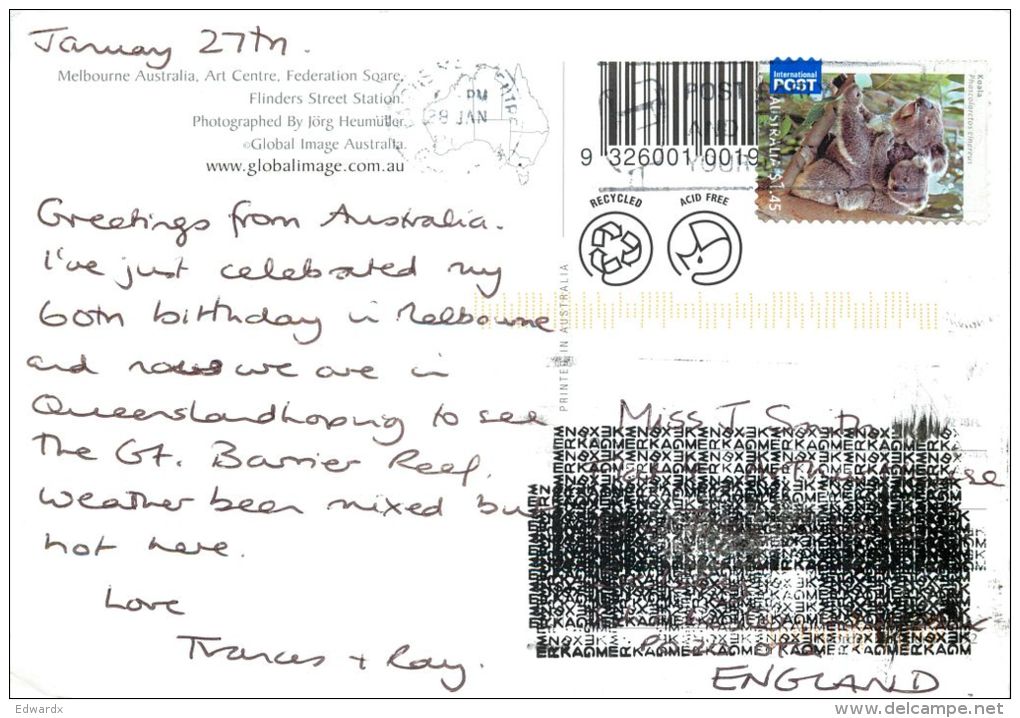 January 27th.
Melbourne Australia, Art Centre, Federation Sqare,
Flinders Street Station.
Photographed By Jörg Heumüller.
©Global Image Australia.
www.globalimage.com.au
PM
29 JAN
Greetings from Australia.
I've just celebrated my
60th birthday in Melbourne
and we are in
Queensland hoping to see
The Gt. Barrier Reef.
Weather been mixed but
hot here.
Love
Frances + Ray.
PRINTED IN AUSTRALIA
9 326001 0019
POST
AND
YOUR
RECYCLED
ACID FREE
International
POST
AUSTRALIA $1.45
Koala
Phascolarctos cinereus
Miss J Smith
ENGLAND
Edwardx
www.delcampe.net